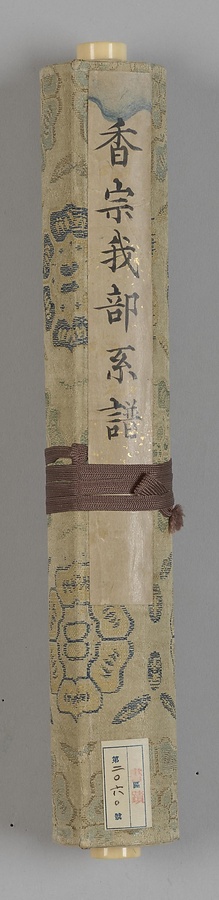 香宗我部系譜
第二〇六〇號